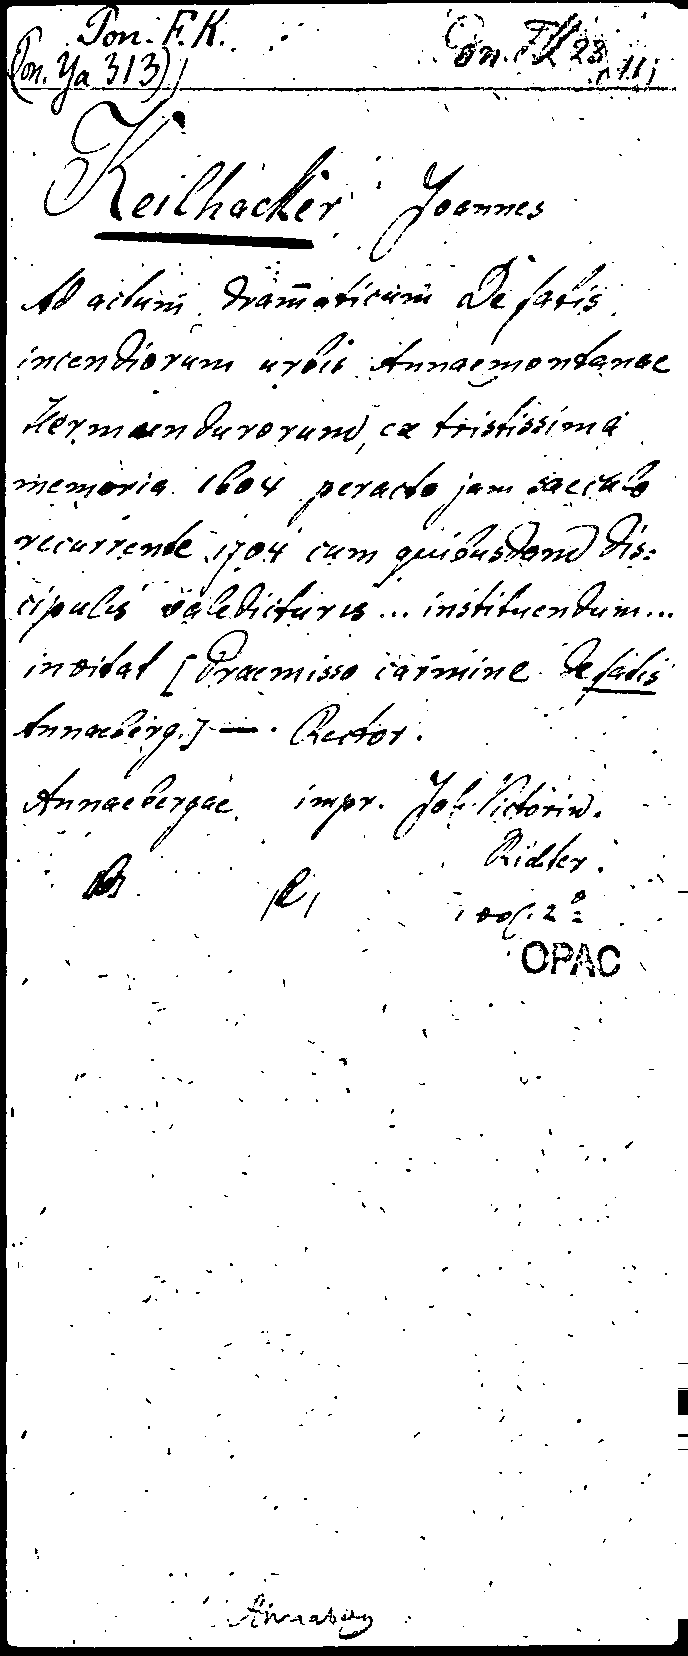 Pon. F.K.
(Pon. Ya 313)
Keilhacker Joannes
Ad actum dram̄aticum De fatis
incendiorum urbis Annaemontanae
Hermundurorum, ex tristissima
memoria 1604 peracto jam saeculo
recurrente 1704 cum quibusdam dis=
cipulis valedicturis ... instituendum ...
invitat [Praemisso carmine de fatis
Annaeberg.] — . Rector.
Annaebergae impr. Joh. Victorin.
2°
OPAC
Annaberg